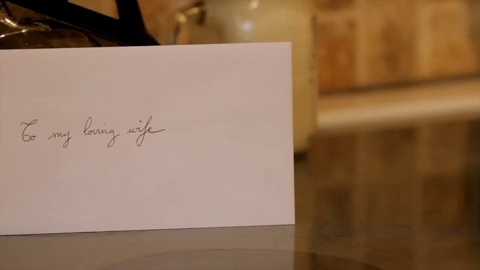 To my loving wife